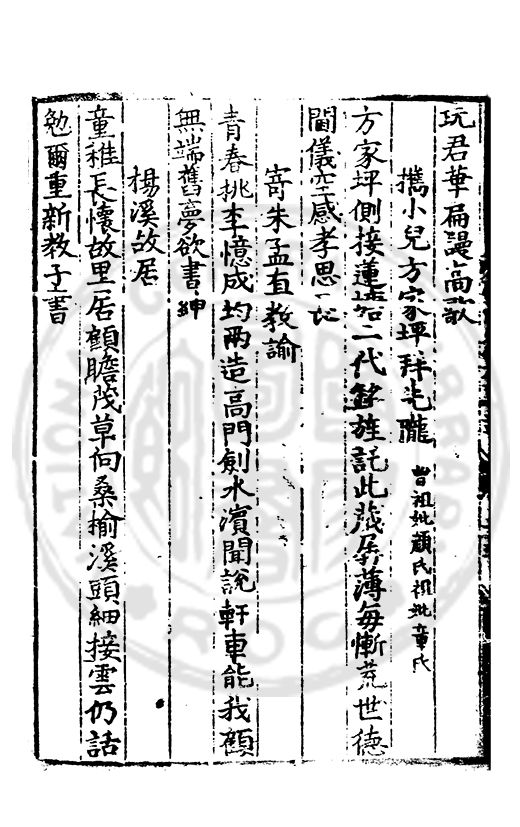 玩君華扁謾高歌
攜小兒方家坪拜先隴 曾祖妣顏氏祖妣章氏
方家坪側接蓮塘二代銘旌託此藏孱薄每慚荒世德
閫儀空感孝思忘
寄朱孟直教諭
青春桃李憶成均兩造高門劍水濱聞說軒車能我顧
無端舊夢欲書紳
楊溪故居
童稚長懷故里居顧瞻茂草向桑榆溪頭細接雲仍話
勉爾重新教子書